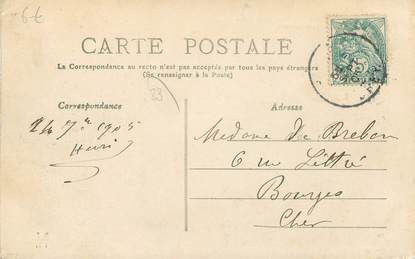 6€
CARTE POSTALE
La Correspondance au recto n'est pas acceptée par tous les pays étrangers
(Se renseigner à la Poste)
Correspondance
23
Adresse
24 7bre 1905
Henri
Madame De Brebon
6 rue Littré
Bourges
Cher